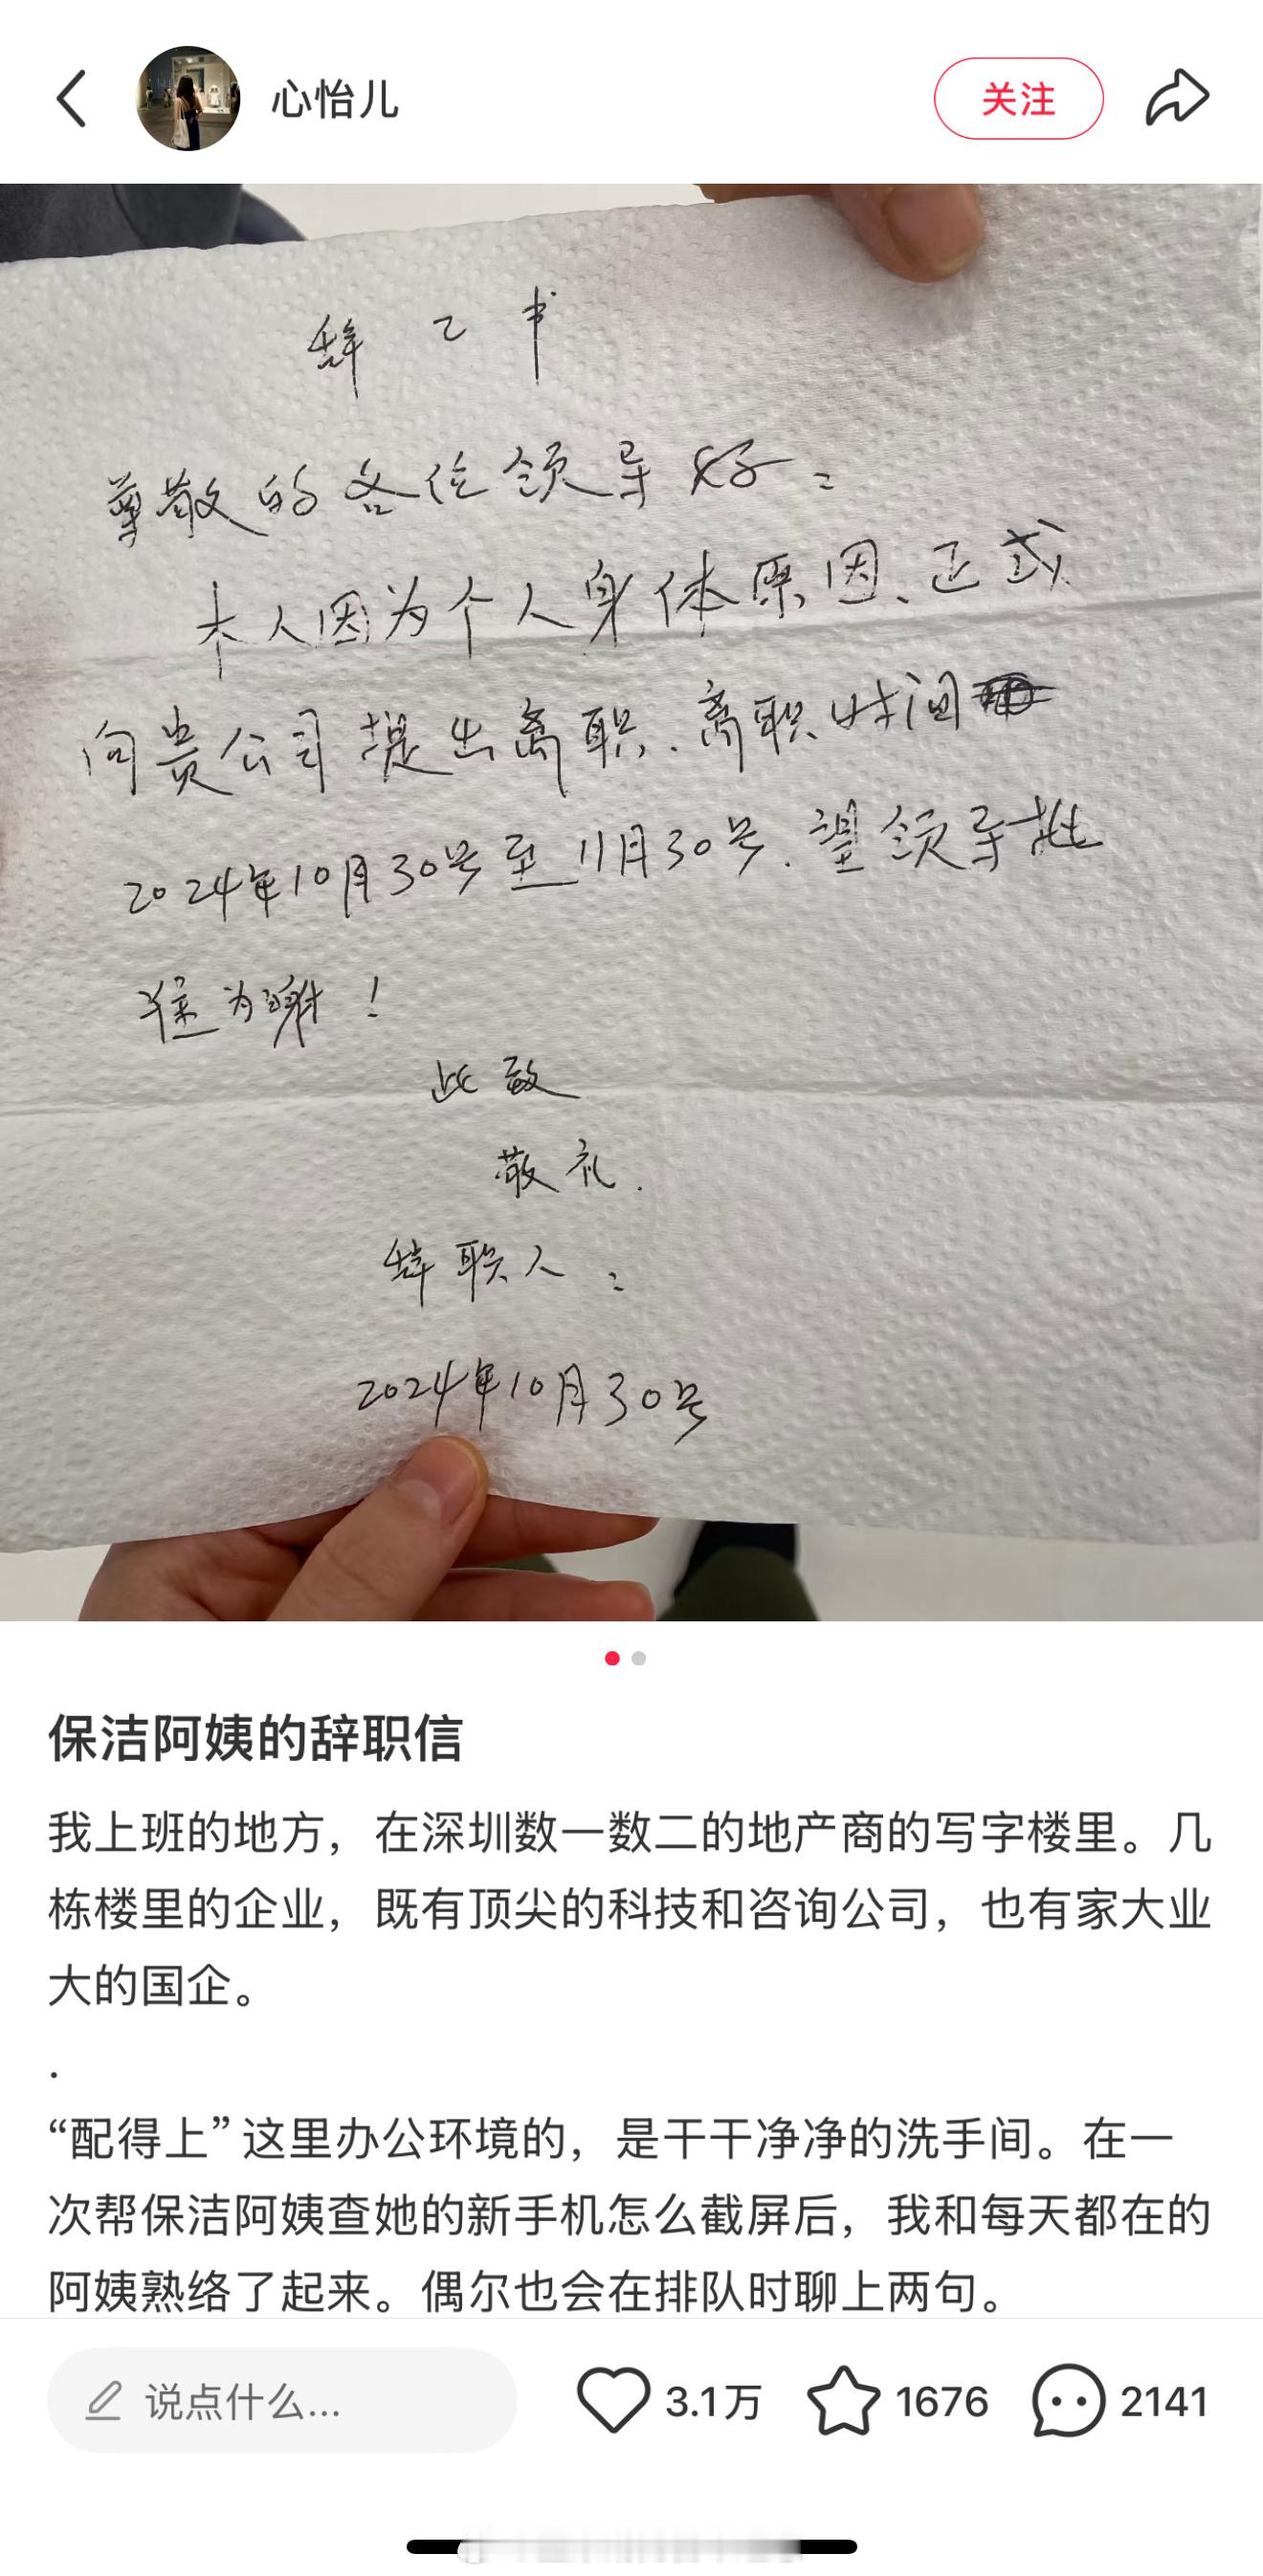 心怡儿
关注
辞工书
尊敬的各位领导好:
本人因为个人身体原因、正式
向贵公司提出离职.离职时间
2024年10月30号至11月30号.望领导批
准为谢!
此致
敬礼.
辞职人:
2024年10月30号
保洁阿姨的辞职信
我上班的地方，在深圳数一数二的地产商的写字楼里。几
栋楼里的企业，既有顶尖的科技和咨询公司，也有家大业
大的国企。
.
“配得上”这里办公环境的，是干干净净的洗手间。在一
次帮保洁阿姨查她的新手机怎么截屏后，我和每天都在的
阿姨熟络了起来。偶尔也会在排队时聊上两句。
说点什么...
3.1万
1676
2141